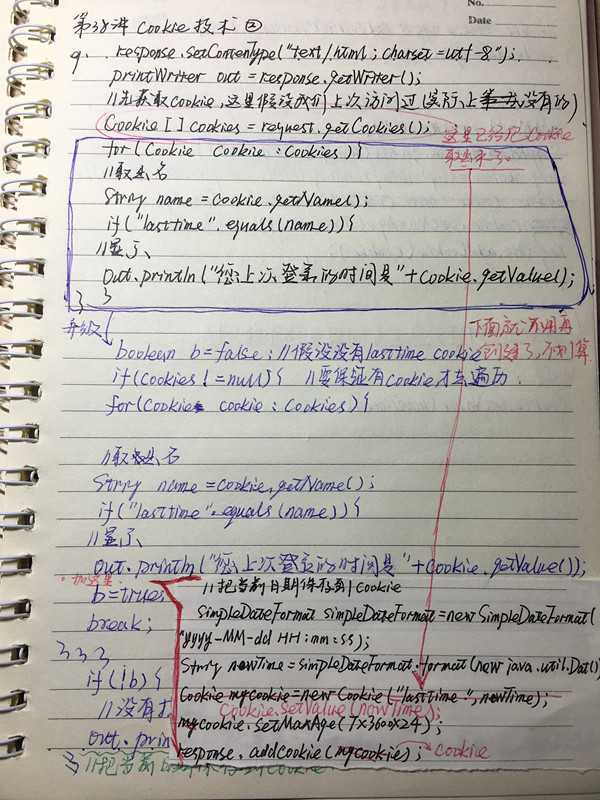 No.
Date
第38讲 Cookie技术②
9. response.setContentType("text/html; charset=utf-8");
printWriter out = response.getWriter();
//先获取cookie,这里假设我们上次访问过(实际上没有的)
Cookie[] cookies = request.getCookies();
这里已经把Cookie
取出来了。
for(Cookie cookie : cookies){
//取出名
String name = cookie.getName();
if("lasttime".equals(name)){
//显示
Out.println("您上次登录的时间是"+Cookie.getValue();
} }
升级
下面就不用再
创建了,不划算
boolean b=false; //假设没有lasttime cookie
if(Cookies!=null){ //要保证有cookie才去遍历
for(Cookie cookie : Cookies){
//取出名
String name = cookie.getName();
if("lasttime".equals(name)){
//显示
out.println("您上次登录的时间是"+Cookie.getValue());
加这里
b=true;
break;
} } }
if(!b){
//没有
out.prin
//把当前日期保存到Cookie
SimpleDateFormat simpleDateFormat=new SimpleDateFormat(
"yyyy-MM-dd HH:mm:ss);
String newTime=simpleDateFormat.format(new java.util.Dat()
Cookie mycookie=new Cookie("lasttime", newTime);
Cookie.setValue(newTime);
mycookie.setMaxAge(7x3600x24);
response.addCookie(mycookie); cookie
} //把当前日期保存到Cookie